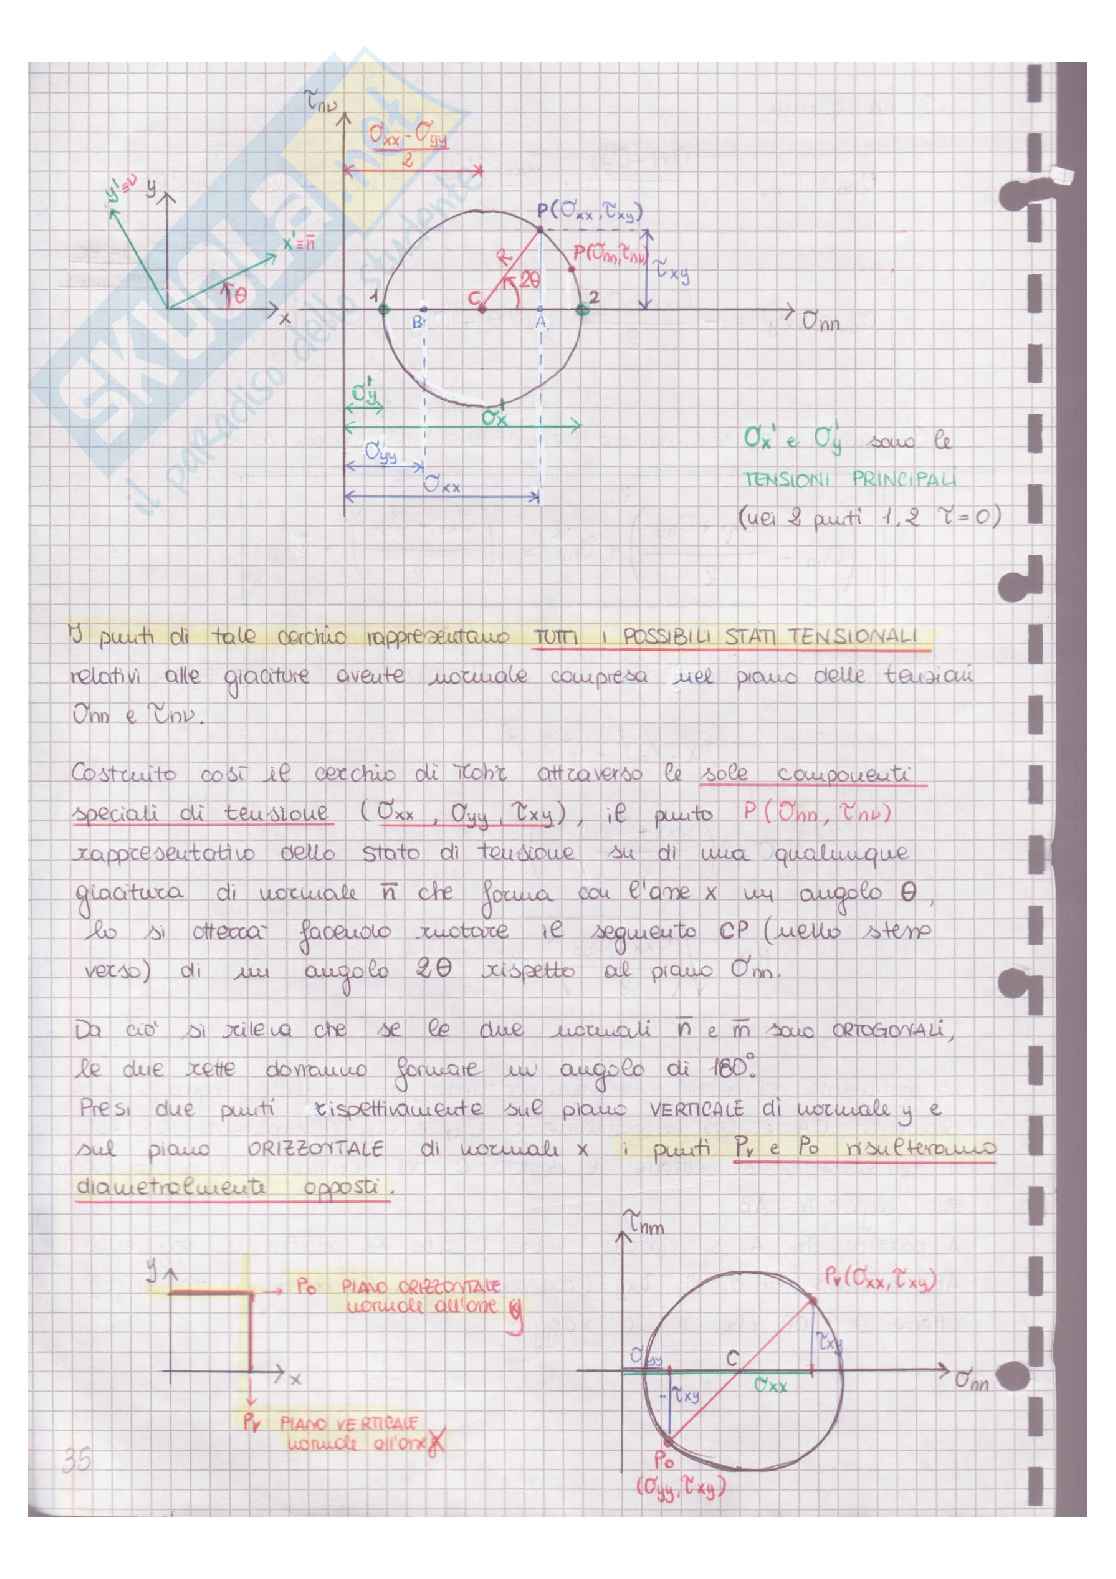 τnν
σxx - σyy
2
y'≡ν
y
x'≡n̄
θ
x
P(σxx, τxy)
P(σnn, τnν)
τxy
R
2θ
1
C
2
B
A
σnn
σy'
σx'
σyy
σxx
σx' e σy' sono le
TENSIONI PRINCIPALI
(nei 2 punti 1,2 τ=0)
I punti di tale cerchio rappresentano TUTTI I POSSIBILI STATI TENSIONALI
relativi alle giaciture avente normale compresa nel piano delle tensioni
σnn e τnν.
Costruito così il cerchio di Mohr attraverso le sole componenti
speciali di tensione (σxx, σyy, τxy), il punto P(σnn, τnν)
rappresentativo dello stato di tensione su di una qualunque
giacitura di normale n̄ che forma con l'asse x un angolo θ,
lo si otterrà facendo ruotare il segmento CP (nello stesso
verso) di un angolo 2θ rispetto al piano σnn.
Da ciò si rileva che se le due normali n̄ e m̄ sono ORTOGONALI,
le due rette dovranno formare un angolo di 180°.
Presi due punti rispettivamente sul piano VERTICALE di normale y e
sul piano ORIZZONTALE di normale x i punti Pv e Po risulteranno
diametralmente opposti.
y
Po PIANO ORIZZONTALE
normale all'asse y
x
Pv PIANO VERTICALE
normale all'asse x
τnm
Pv(σxx, τxy)
τxy
σyy
C
σxx
σnn
-τxy
Po
(σyy, τxy)
35
SKUOLA.net
il paradiso dello studente